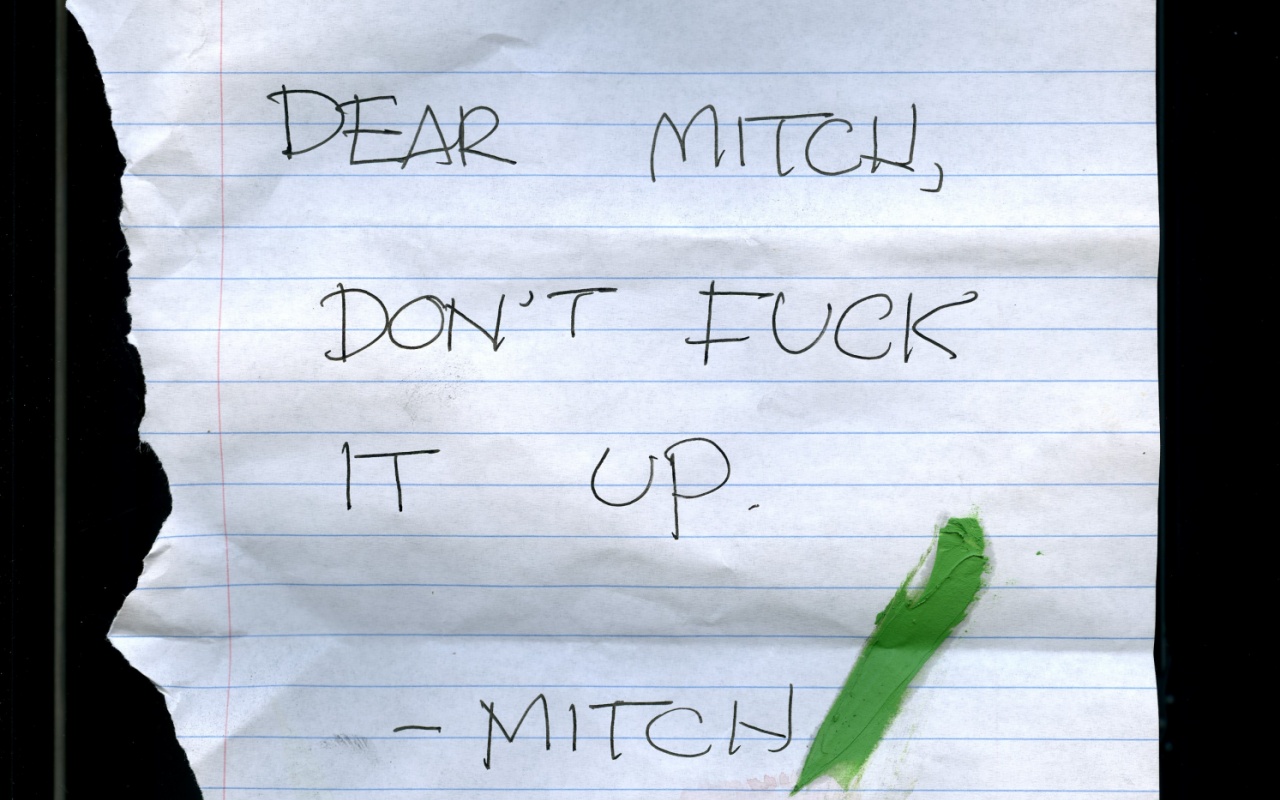 DEAR MITCH,
DON'T FUCK
IT UP.
- MITCH